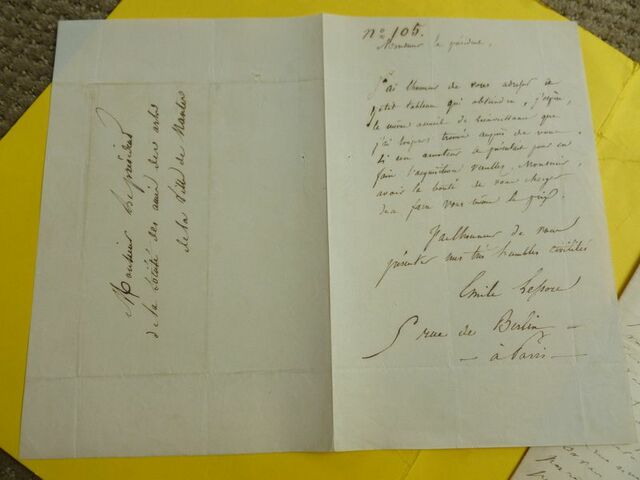 Monsieur Le président
de la Société des amis des arts
de la Ville de Nantes
n° 106.
Monsieur le président,
J'ai l'honneur de vous adresser ce
petit tableau qui obtiendra, j'espère,
le même accueil de bienveillance que
j'ai toujours trouvé auprès de vous.
Si un amateur se présentait pour en
faire l'acquisition veuillez, Monsieur,
avoir la bonté de vous charger
d'en faire vous même le prix.
J'ai l'honneur de vous
présenter mes très humbles civilités
Emile Lessore
5 rue de Berlin
à Paris